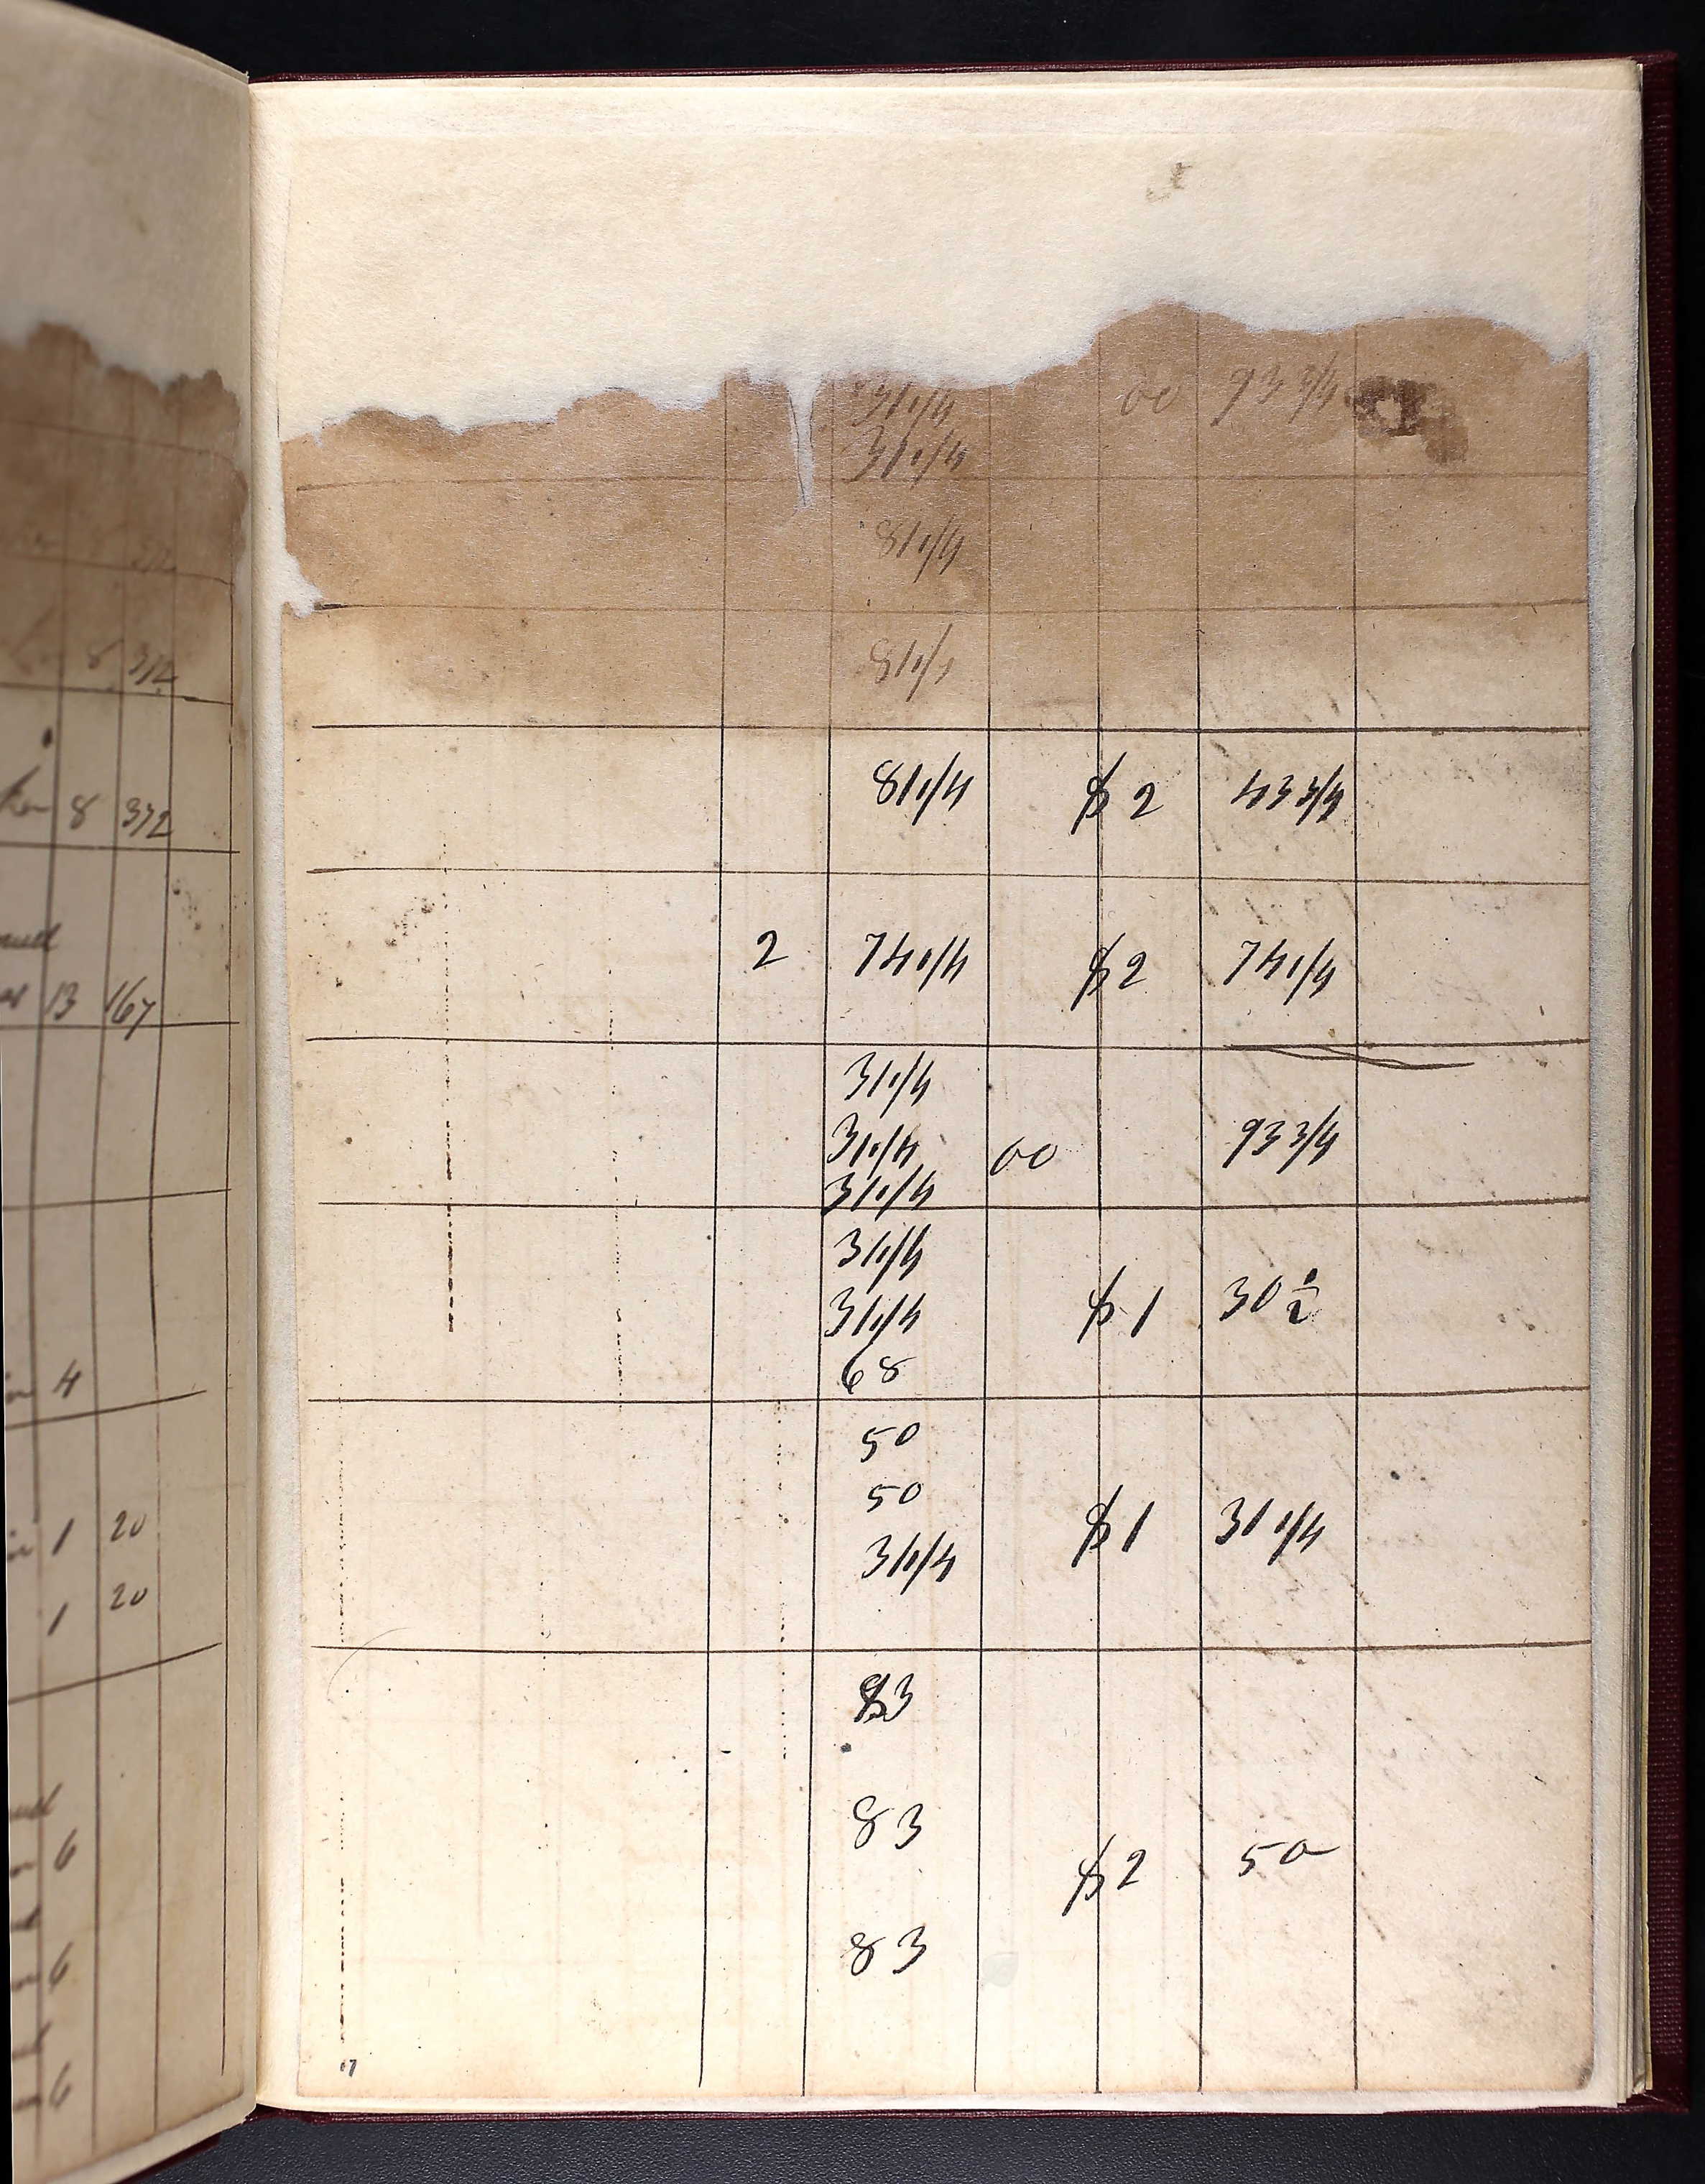 31 1/4 00 93 3/4
31 1/4
81 1/4
312
8 312
81 1/4
81 1/4 $2 43 3/4
8 372
2 74 1/4 $2 74 1/4
13 167
31 1/4
31 1/4 00 93 3/4
31 1/4
31 1/4
31 1/4 $1 30 1/2
68
4
50
50
1 20 $1 31 1/4
31 1/4
1 20
83
83
6 $2 50
83
6
6
17